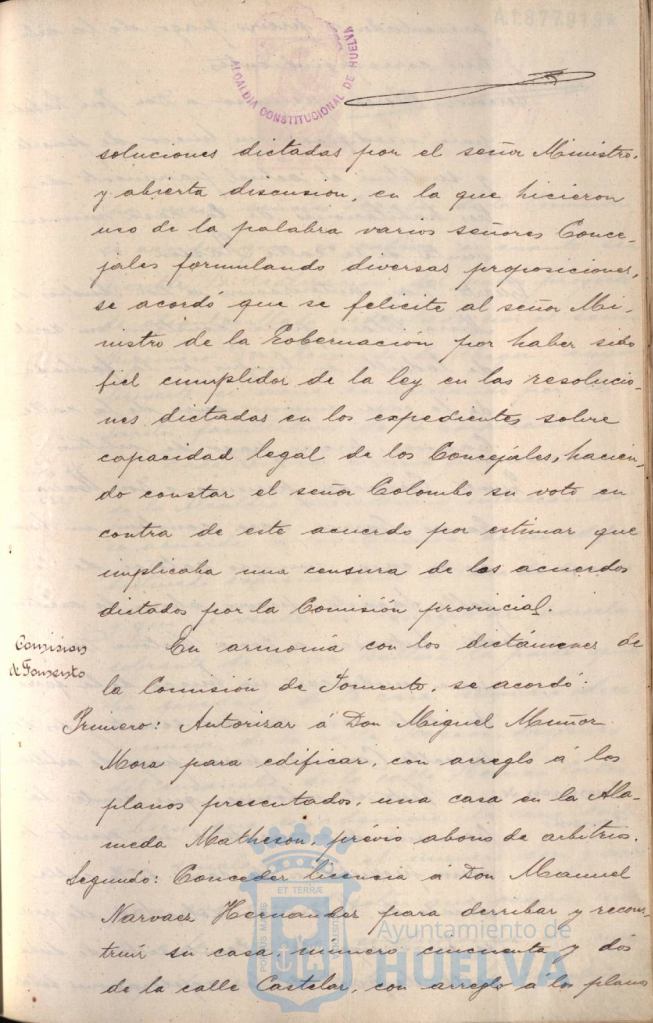 A1.877.919
ALCALDÍA CONSTITUCIONAL DE HUELVA
soluciones dictadas por el señor Ministro,
y abierta discusion, en la que hicieron
uso de la palabra varios señores Conce-
jales formulando diversas proposiciones,
se acordó que se felicite al señor Mi-
nistro de la Gobernación por haber sido
fiel cumplidor de la ley en las resolucio-
nes dictadas en los expedientes sobre
capacidad legal de los Concejales, hacien-
do constar el señor Colombo su voto en
contra de este acuerdo por estimar que
implicaba una censura de los acuerdos
dictados por la Comisión provincial.
Comision
de Fomento
En armonía con los dictámenes de
la Comisión de Fomento, se acordó:
Primero: Autorizar á Don Miguel Muñoz
Mora para edificar, con arreglo á los
planos presentados, una casa en la Ala-
meda Matheson, prévio abono de arbitrios.
Segundo: Conceder licencia á Don Manuel
Narvaez Hernandez para derribar y recons-
truir su casa, número cincuenta y dos
de la calle Castelar, con arreglo a los planos
PORTUS MARIS ET TERRÆ CUSTODIA
Ayuntamiento de
HUELVA